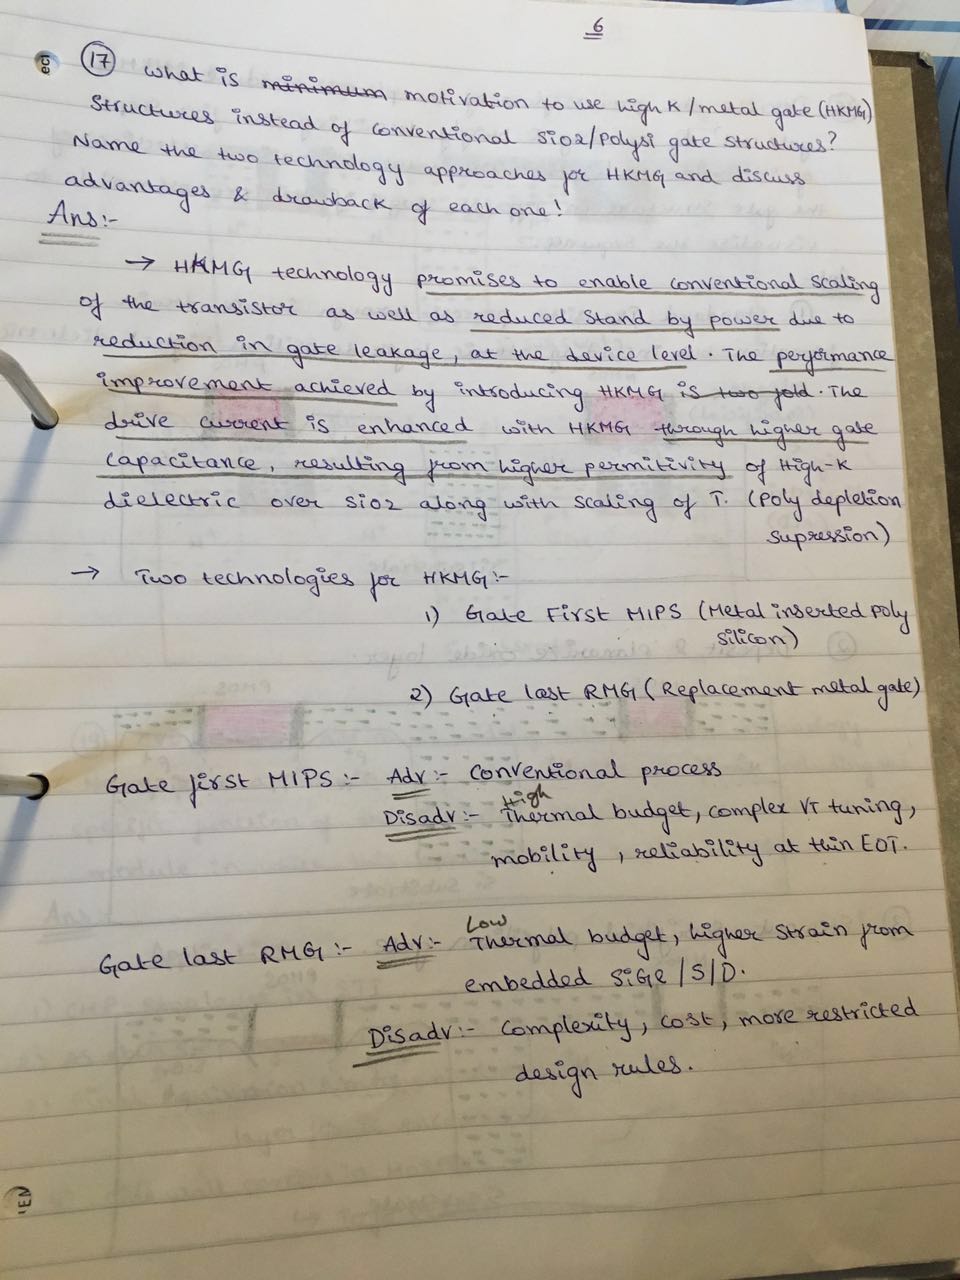 6
17 What is minimum motivation to use high K/metal gate (HKMG)
Structures instead of conventional SiO2/Polysi gate structures?
Name the two technology approaches for HKMG and discuss
advantages & drawback of each one!
Ans:-
→ HKMG technology promises to enable conventional scaling
of the transistor as well as reduced stand by power due to
reduction in gate leakage, at the device level. The performance
improvement achieved by introducing HKMG is two fold. The
drive current is enhanced with HKMG through higher gate
capacitance, resulting from higher permitivity of High-K
dielectric over SiO2 along with scaling of T. (Poly depletion
supression)
→ Two technologies for HKMG:-
1) Gate First MIPS (Metal inserted poly
silicon)
2) Gate last RMG (Replacement metal gate)
Gate first MIPS:- Adv:- Conventional process
Disadv:- High Thermal budget, complex VT tuning,
mobility, reliability at thin EOT.
Gate last RMG:- Adv:- Low Thermal budget, higher strain from
embedded SiGe/S/D.
Disadv:- Complexity, cost, more restricted
design rules.